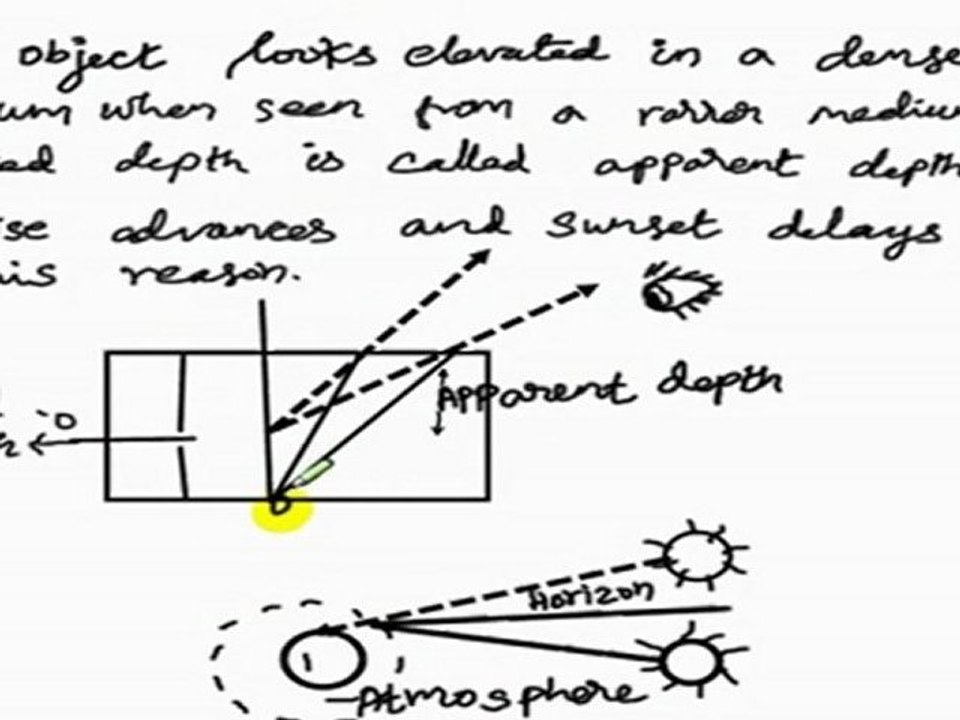 object looks elevated in a dense
um when seen from a rarer medium
ed depth is called apparent depth
ise advances and sunset delays
is reason.
Apparent depth
D
O
Horizon
Atmosphere